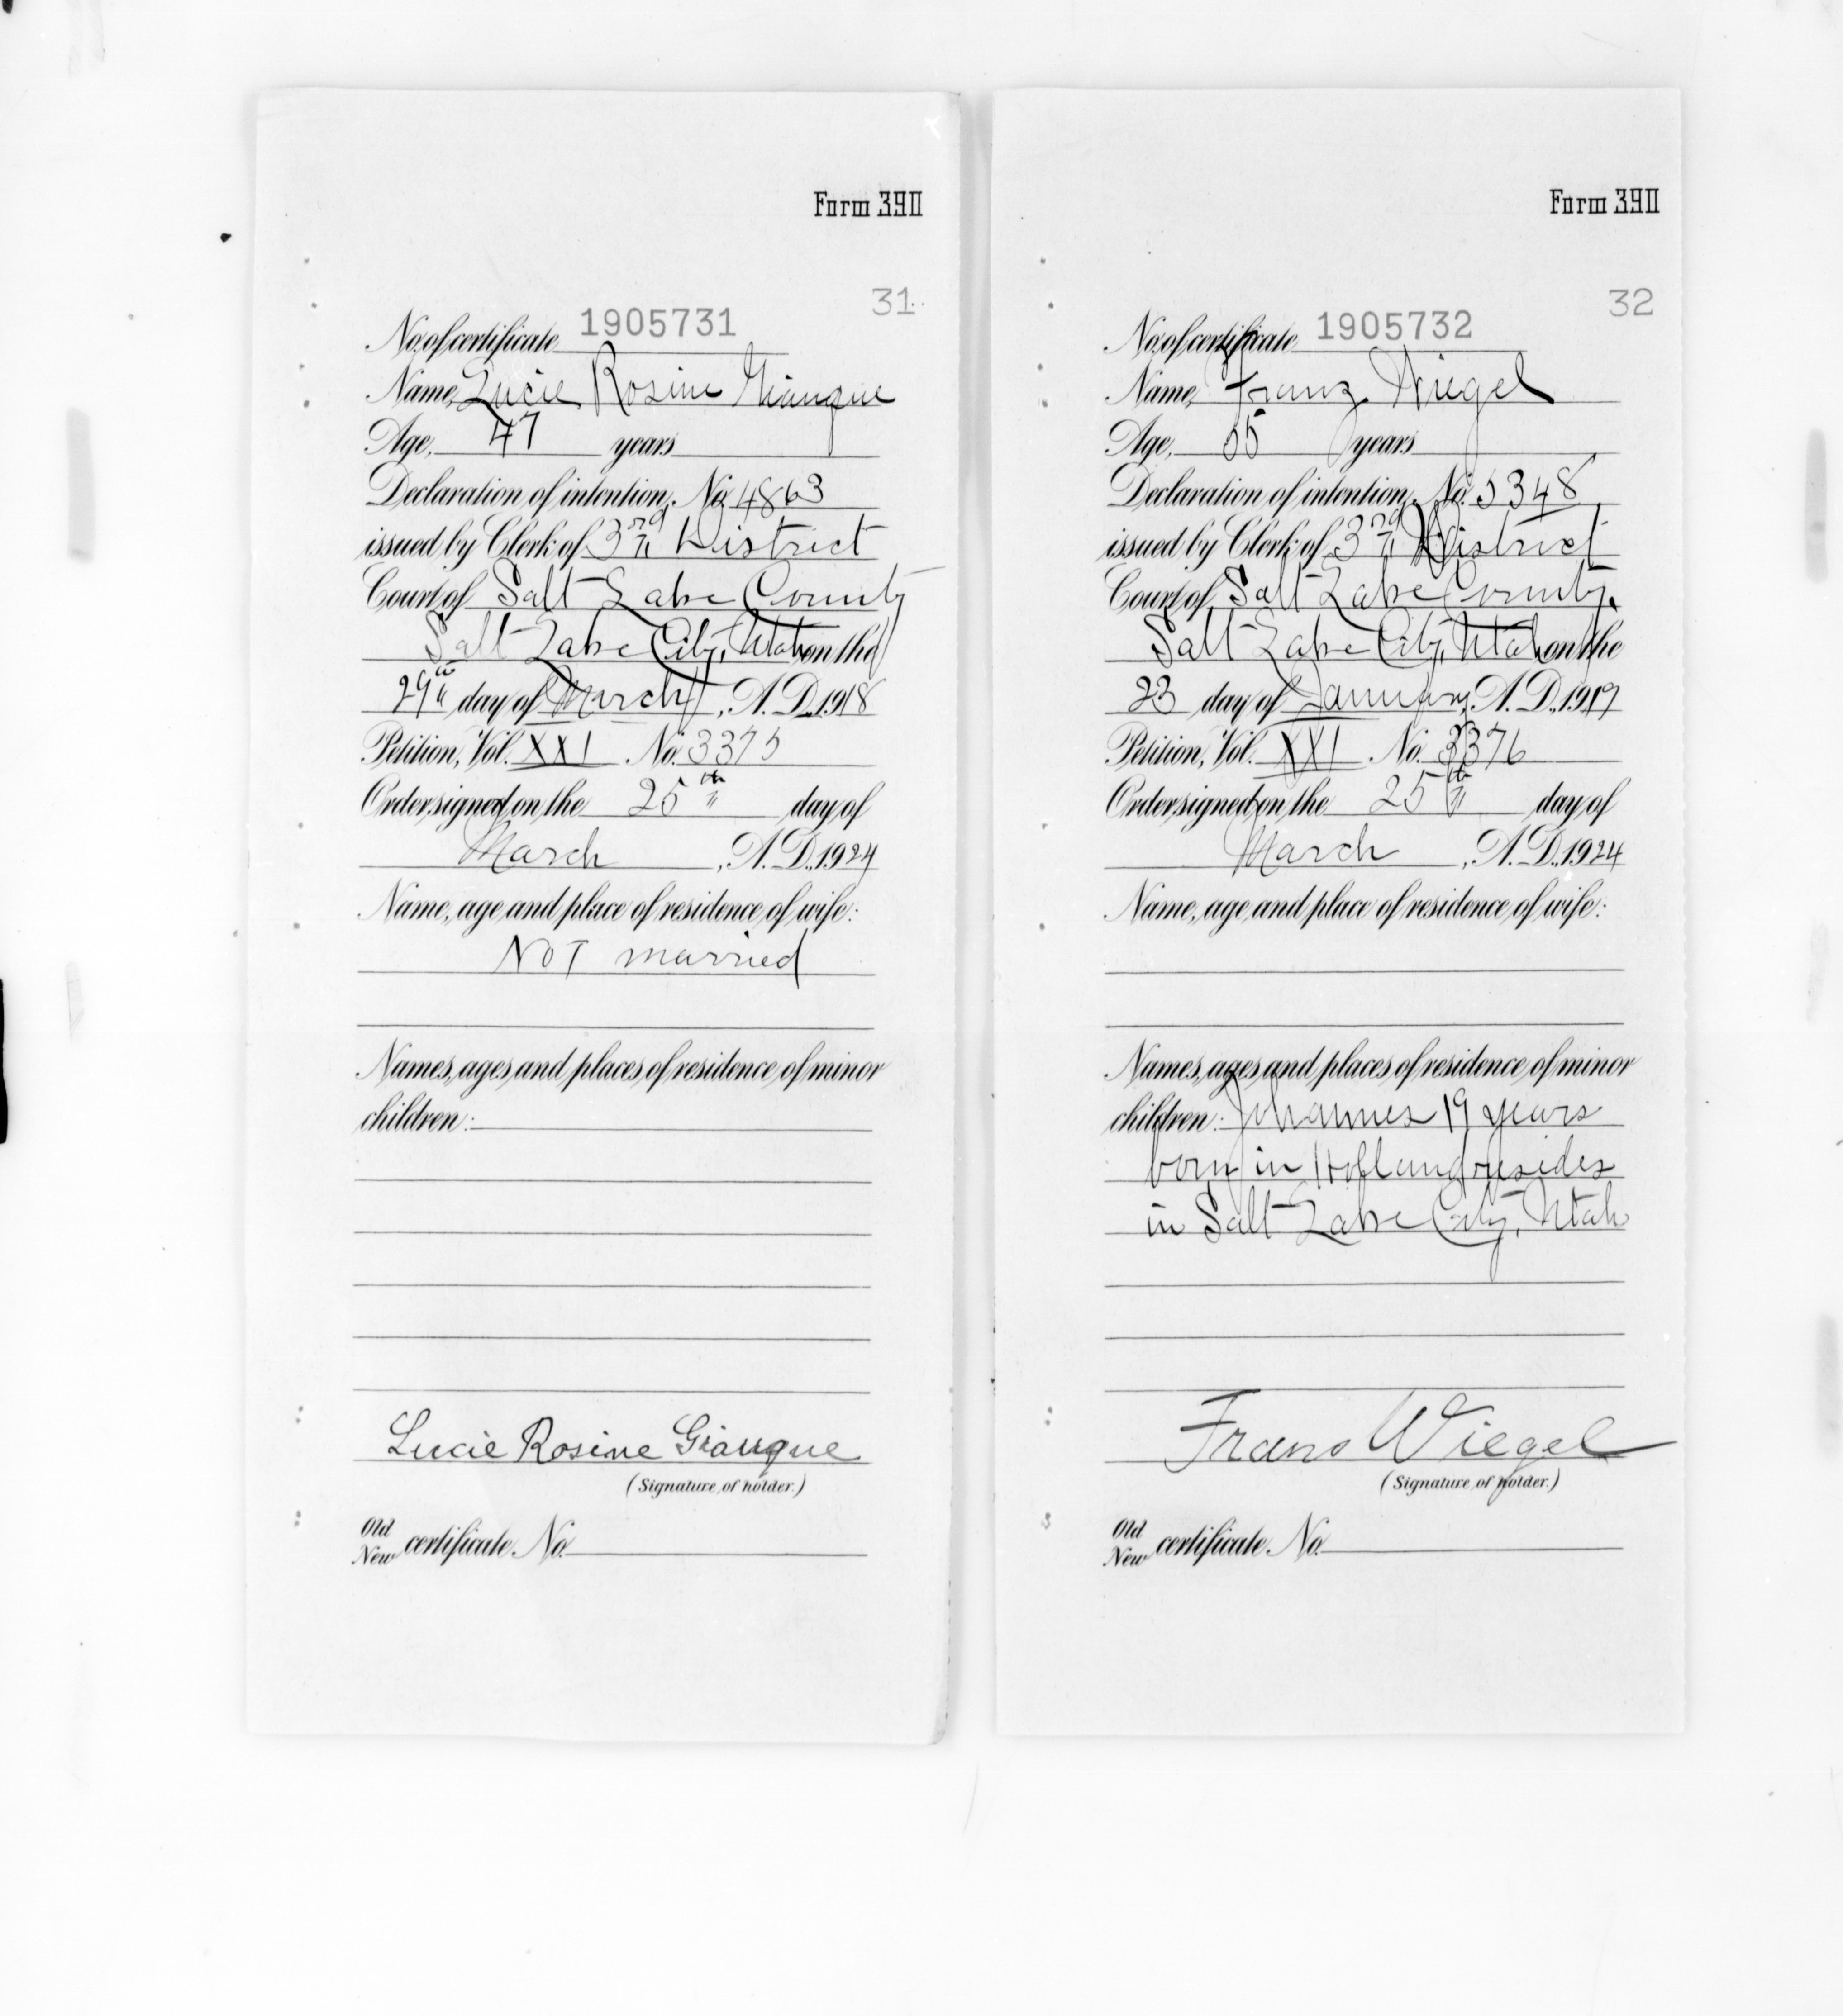 Form 390
31
No. of certificate 1905731
Name, Lucie Rosine Giauque
Age, 47 years
Declaration of intention, No. 4863
issued by Clerk of 3rd District
Court of Salt Lake County
Salt Lake City, Utah on the
29th day of March, A. D. 1918
Petition, Vol. XXI No. 3375
Order signed on the 25th day of
March, A. D., 1924
Name, age and place of residence of wife:
NOT married
Names, ages and places of residence of minor
children:
Lucie Rosine Giauque
(Signature of holder.)
Old
New certificate No.
Form 390
32
No. of certificate 1905732
Name, Franz Wiegel
Age, 55 years
Declaration of intention, No. 5348
issued by Clerk of 3rd District
Court of Salt Lake County,
Salt Lake City, Utah on the
23 day of January, A. D., 1919
Petition, Vol. XXI No. 3376
Order signed on the 25th day of
March, A. D., 1924
Name, age and place of residence of wife:
Names, ages and places of residence of minor
children: Johannes 19 years
born in Holland resides
in Salt Lake City, Utah
Frans Wiegel
(Signature of holder.)
Old
New certificate No.